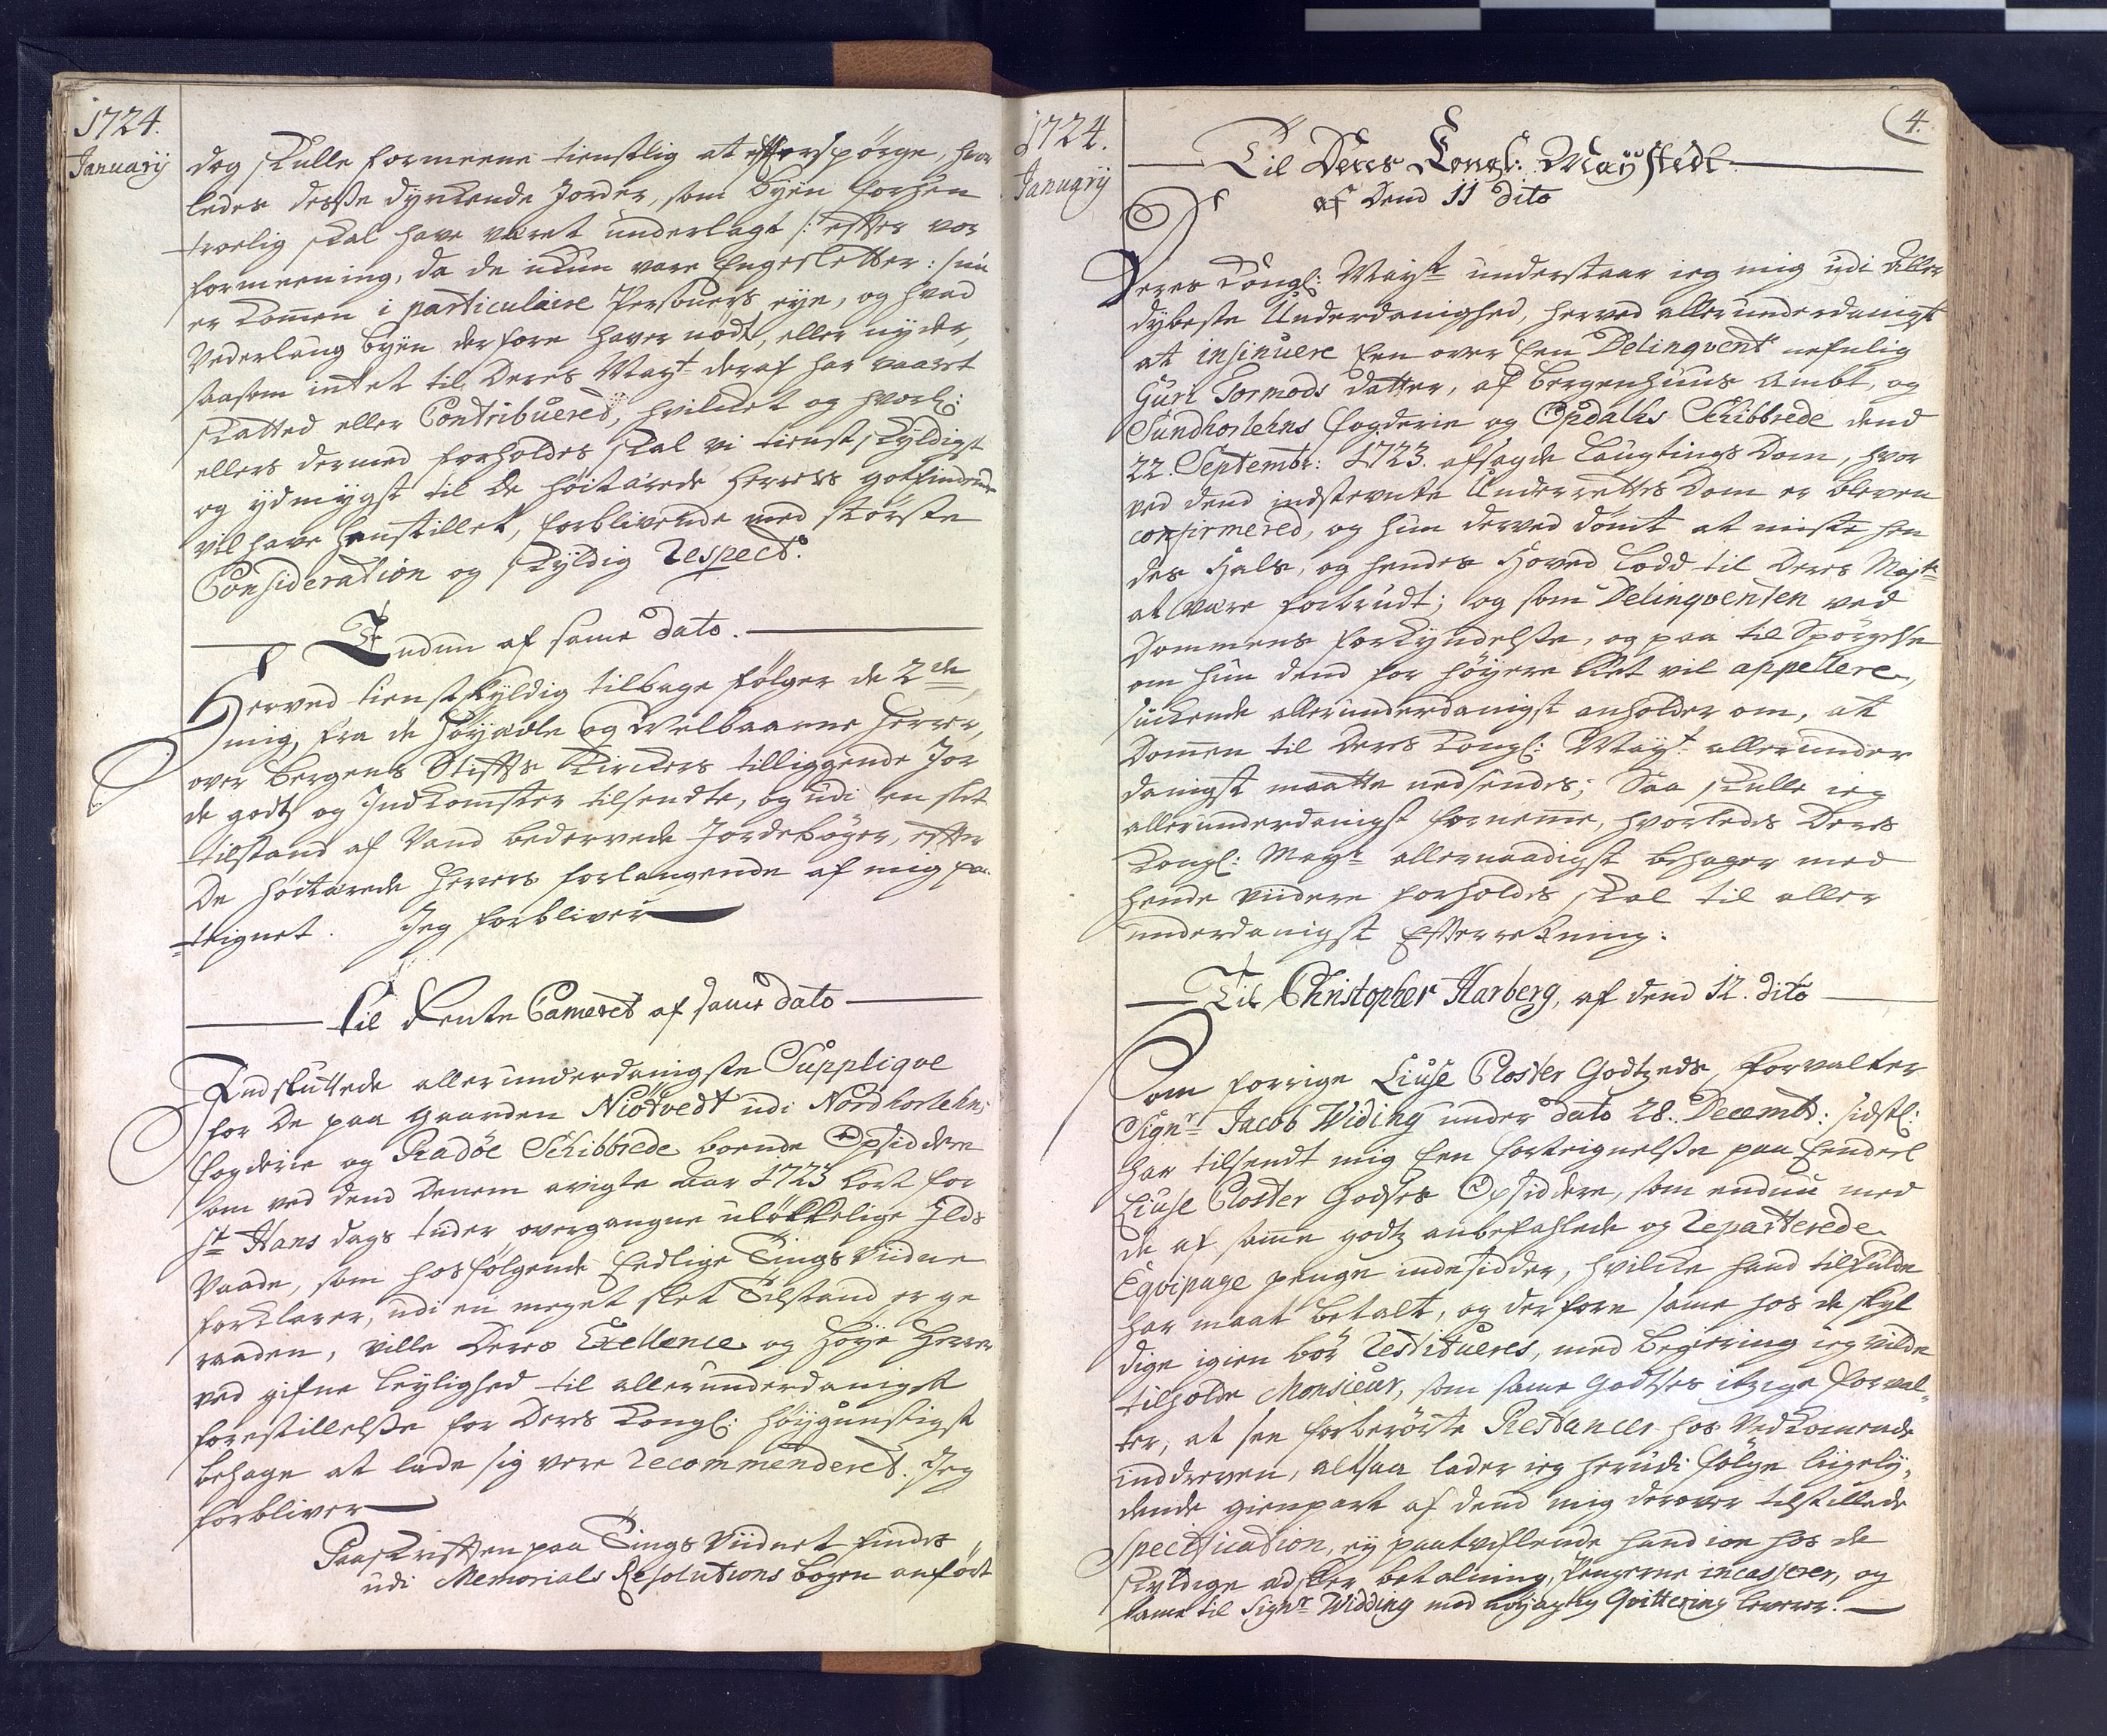 1724.
Januarij
dog skulle formeene tienstlig at efterspörge, hvor
ledes desse dyrkende Jorder, som byen forhen
troelig skal have været underlagt /: efter vor
formeening, da de ickun vare Engesletter :/ nu
er kommen i particulaire Persohners eye, og hvad
Vederlaug byen derfore haver nödt, eller nyder,
saasom intet til Deres Mayt. deraf har vaaret
skatted eller Contribuered, hvilcket og hvorl:
ellers dermed forholdes skal vi tienstskyldigst
og ydmygst til De höitærede Herrers gotfindende
vil have henstillet, forblivende med störste
Consideration og skyldig Respect.
Endnu af samme dato.
Herved tienstskyldig tilbage fölger de 2de
mig, fra de Höyædle og Welbaarne Herrer,
over Bergens Stifts Kirckers tilliggende Jor
de godtz og Indkomster tilsendte, og udi en slet
tilstand af Vand bedervede Jordeböger, efter
De höitærede Herrers forlangende af mig pa-
=teignet. Jeg forbliver
Til Rente Cameret af samme dato
Indsluttede allerunderdanigste Supplique
for De paa gaarden Niötvedt udi Nordhorlehns
fogderie og Radöe Schibbrede boende Opsiddere
som ved dend Denem avigte Aar 1723 kort for
St Hans dags tider, overgangne uløkkelige Ilds
Vaade, som hosfölgende Eedlige Tings Vidne
forklarer, udi en meget slet Tilstand er ge
raaden, ville Deres Exellence og Höye Herrer
ved gifne leylighed til allerunderdanigst
forestillelse for Deres Kongl: höygunstigst
behage at lade sig vere recommenderet. Jeg
forbliver
Paaskriften paa Tings Vidnet findes
udi Memorials Resolutions bogen anfört
4.
1724.
Januarij
Til Deres Kongl: Mayestedt
af Dend 11 dito
Deres Kongl: Mayt understaar ieg mig udi Aller
dybeste Underdanighed, herved allerunderdanigst
at insinuere Een over Een Delinqvent nefnlig
Guri Tormods datter, af Bergenhuus Ambt, og
Sundhorlehns fogderie og Opdahls Schibbrede dend
22. Septembr: 1723. afsagde Laugtings Dom, hvor
ved dend indstevnte Underrettes Dom er bleven
confirmered, og hun derved dömt at miste hen
des Hals, og hendes Hoved lodd til Deres Mayt
at være forbrudt; og som Delinqventen ved
Dommens forkyndelse, og paa tilspörgelse
om hun dend for höyere Ret vil appellere,
suckende allerunderdanigst anholder om, at
Dommen til Deres Kongl: Mayt. allerunder
danigst maatte nedsendes; Saa skulle ieg
allerunderdanigst fornemme, hvorledes Deres
Kongl: Mayt allernaadigst behager med
hende viidere forholdes skal til aller
underdanigst Efterretning.
Til Christopher Harberg, af dend 12. dito
Som forrige Liuse Closter Godtzeds forvalter
Signr Jacob Widing under dato 28. Decembr: sidstl:
har tilsendt mig Een forteignelse paa Eendeel
Liuse Closter Godses Opsiddere, som endnu med
de af samme godtz anbefahlede og Reparterede
Eqvipage penge indesidder, hvilcke hand tilfulde
har maat betalt, og derfore samme hos de skyl
dige igien bör restitueres, med begiering ieg vilde
tilholde Monsieur, som samme Godtses itzige forval-
ter, at see forberörte Restancer hos Vedkommende
inddreven, altsaa lader ieg herudi fölge ligely,,
dende gienpart af dend mig derover tilstillede
specification, ey paatviflende hand ioe hos de
skyldige adskier betalning, Pengerne incasserer, og
samme til Signr Widding mod nöyagtig Qvittering leverer.